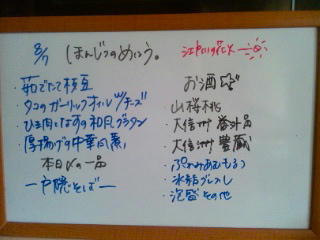 8/7 ほんじつのめにう。
江戸川の花火
・茹でたて枝豆
・タコのガーリックオイルw/チーズ
・ひき肉となすの和風グラタン
・厚揚げの中華風煮
本日〆の一品
ー戸隠そばー
お酒☆
・山桜桃
・大信州 番外品
・大信州 豊蔵
・ぷれみあむもるつ
・氷結グレフル
・泡盛 その他